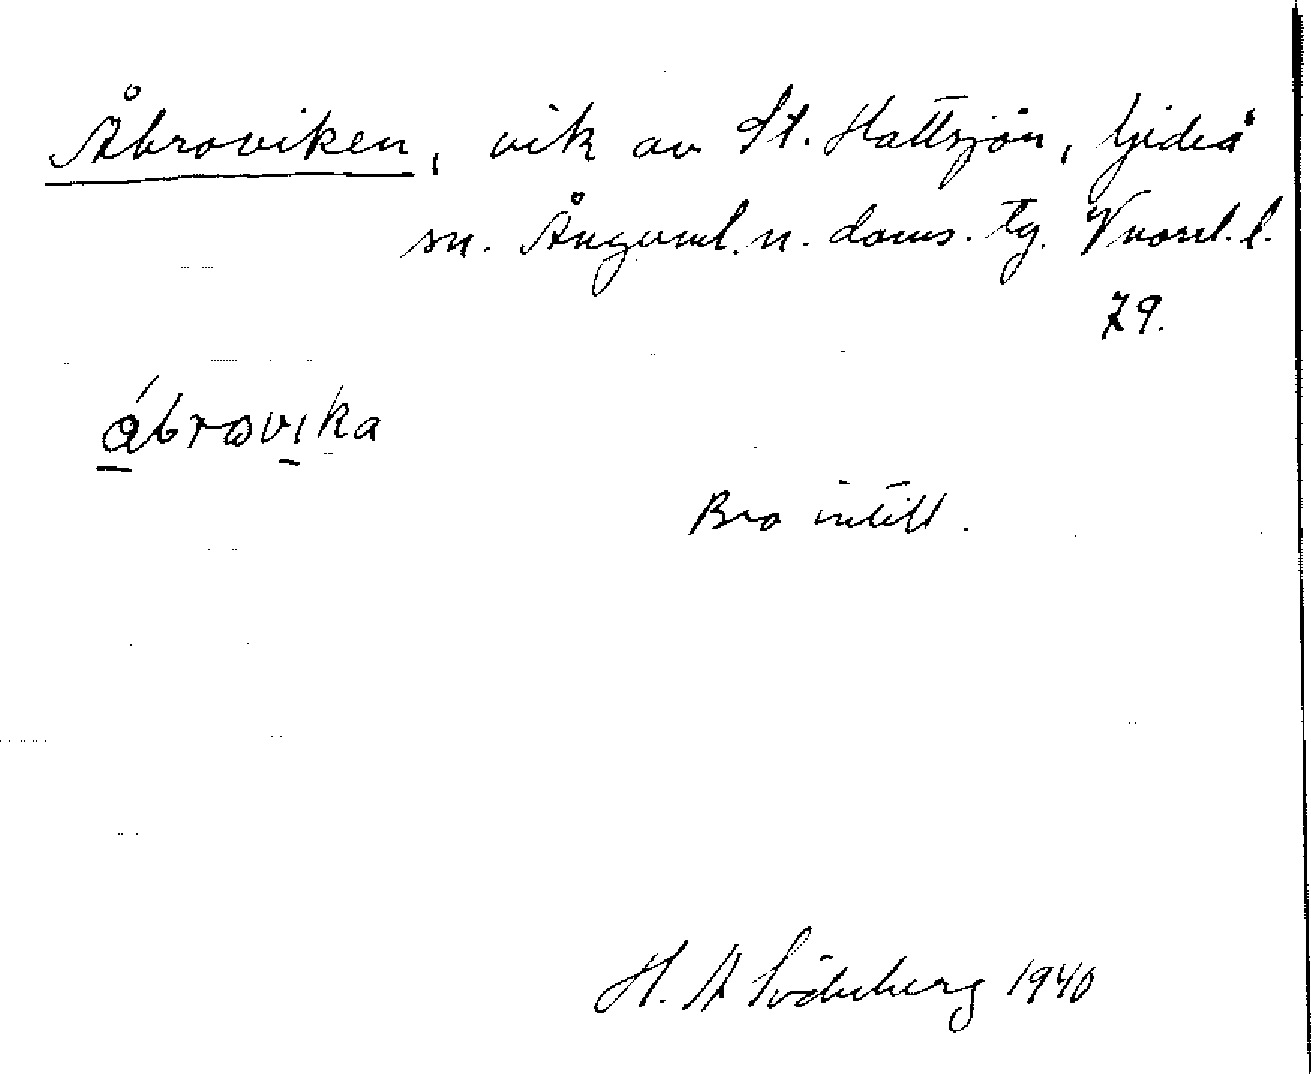 Åbroviken, vik av St. Hattsjön, Gideå
sn. Ångerml. n. doms. tg. Vnorrl. l.
79.
åbrovika
Bro intill.
H. A Söderberg 1940